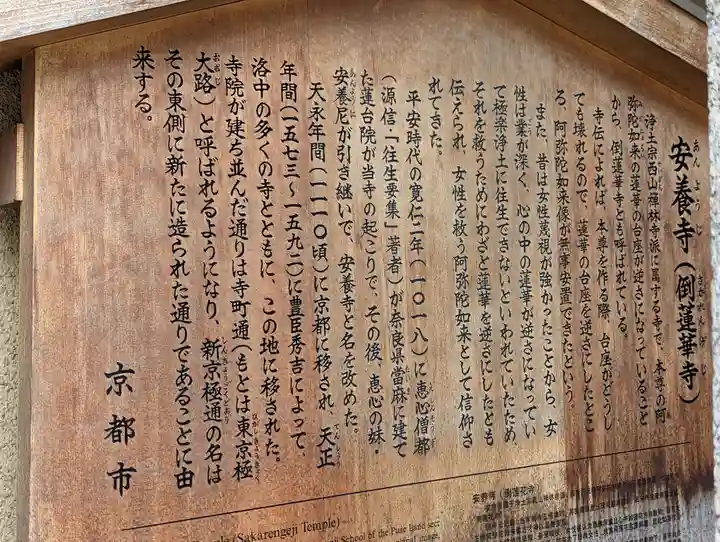 安養寺(倒蓮華寺)
浄土宗西山禅林寺派に属する寺で、本尊の阿
弥陀如来の蓮華の台座が逆さになっていること
から、倒蓮華寺とも呼ばれている。
寺伝によれば、本尊を作る際、台座がどうし
ても壊れるので、蓮華の台座を逆さにしたとこ
ろ、阿弥陀如来像が無事安置できたという。
また、昔は女性蔑視が強かったことから、女
性は業が深く、心の中の蓮華が逆さになってい
て極楽浄土に往生できないといわれていたため
それを救うためにわざと蓮華を逆さにしたとも
伝えられ、女性を救う阿弥陀如来として信仰さ
れてきた。
平安時代の寛仁二年(一〇一八)に恵心僧都
(源信・「往生要集」著者)が奈良県當麻に建て
た蓮台院が当寺の起こりで、その後、恵心の妹・
安養尼が引き継いで、安養寺と名を改めた。
天永年間(一一一〇頃)に京都に移され、天正
年間(一五七三~一五九二)に豊臣秀吉によって、
洛中の多くの寺とともに、この地に移された。
寺院が建ち並んだ通りは寺町通(もとは東京極
大路)と呼ばれるようになり、新京極通の名は
その東側に新たに造られた通りであることに由
来する。
京都市
(Sakarengeji Temple)
School of the Pure Land sect